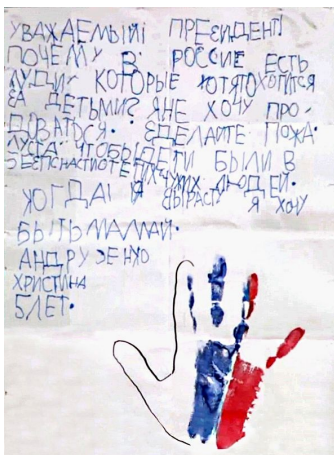 УВАЖАЕМЫЙ ПРЕЗИДЕНТ!
ПОЧЕМУ В РОССИЕ ЕСТЬ
ЛУДИ КОТОРЫЕ ХОТЯТ ОХОПИТСЯ
ЗА ДЕТЬМИ? Я НЕ ХОЧУ ПРО
ДОВАТЬСЯ. СДЕЛАЙТЕ ПОЖА
ЛУСТА ЧТОБЫ ДЕТИ БЫЛИ В
ЧУЖИХ ЛЮДЕЙ.
КОГДА Я ВЫРАСТУ Я ХОЧУ
БЫТЬ МАМАЙ.
АНДРУЗЕНКО
ХРИСТИНА
5 ЛЕТ.